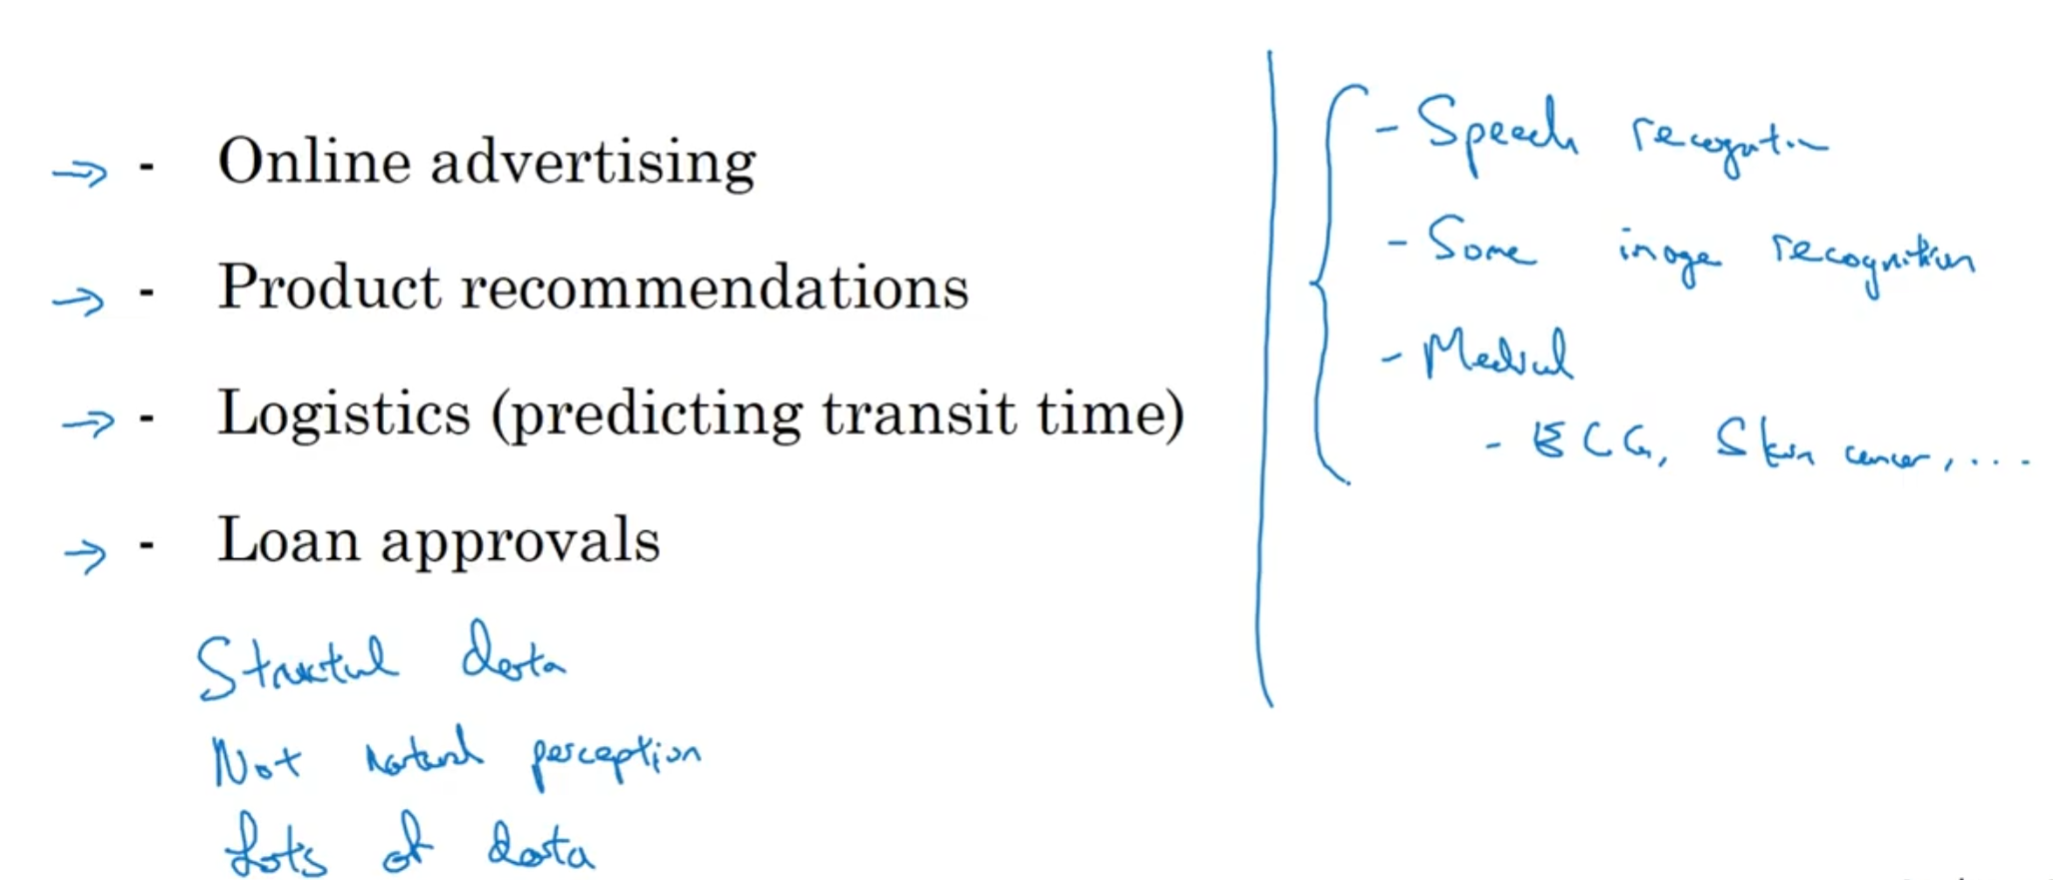 - Online advertising
- Product recommendations
- Logistics (predicting transit time)
- Loan approvals
Structured data
Not natural perception
Lots of data
- Speech recognition
- Some image recognition
- Medical
- ECG, Skin cancer, ...